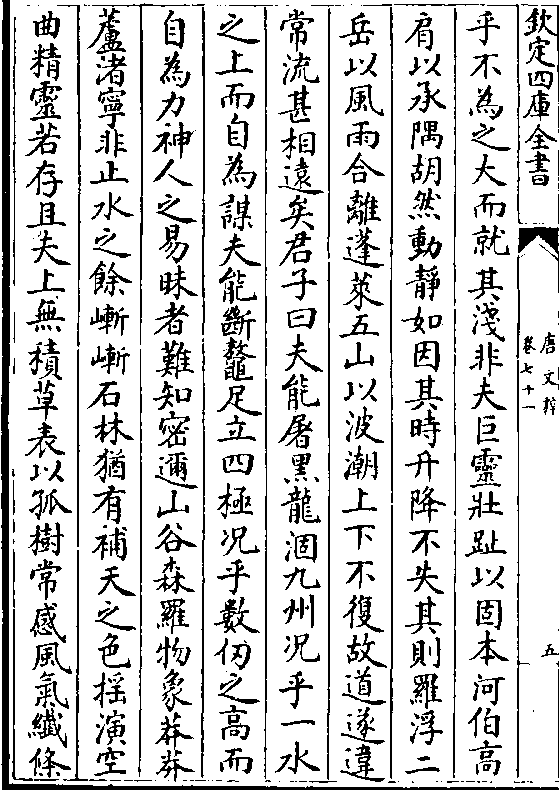 欽定四庫全書
唐文粹
卷七十一
五
乎不為之大而就其淺非夫巨靈壯趾以固本河伯高
肩以承隅胡然動靜如因其時升降不失其則羅浮二
岳以風雨合離蓬萊五山以波潮上下不復故道遂違
常流甚相遠矣君子曰夫能屠黑龍涸九州况乎一水
之上而自為謀夫能斷鼇足立四極况乎數仞之高而
自為力神人之易昧者難知密邇山谷森羅物象莽莽
蘆渚寧非止水之餘嶃嶃石林猶有補天之色揺演空
曲精靈若存且夫上無積草表以孤樹常感風氣纖條